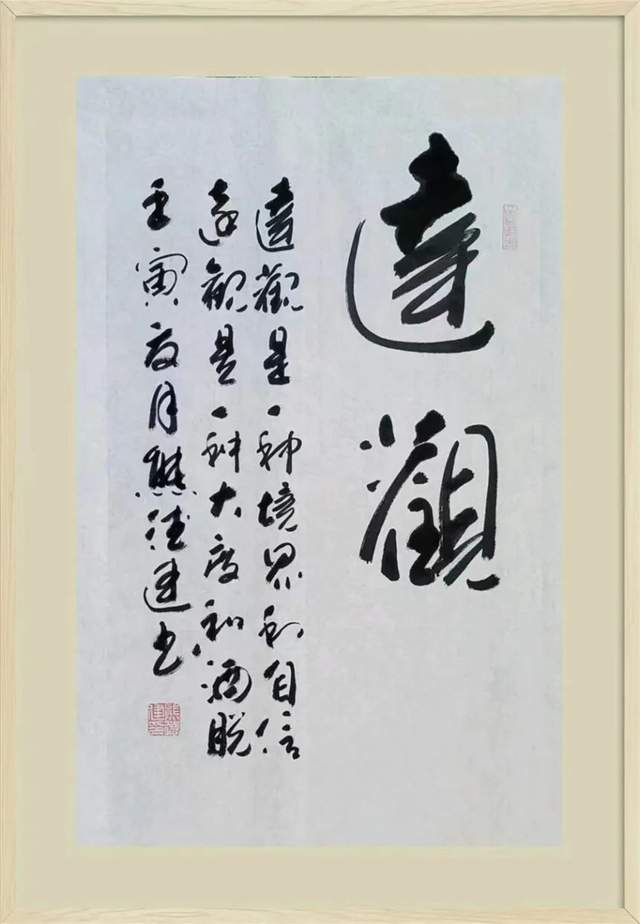 達觀
達觀是一种境界和自信
達觀是一种大度和洒脱
壬寅夏月熊德建书